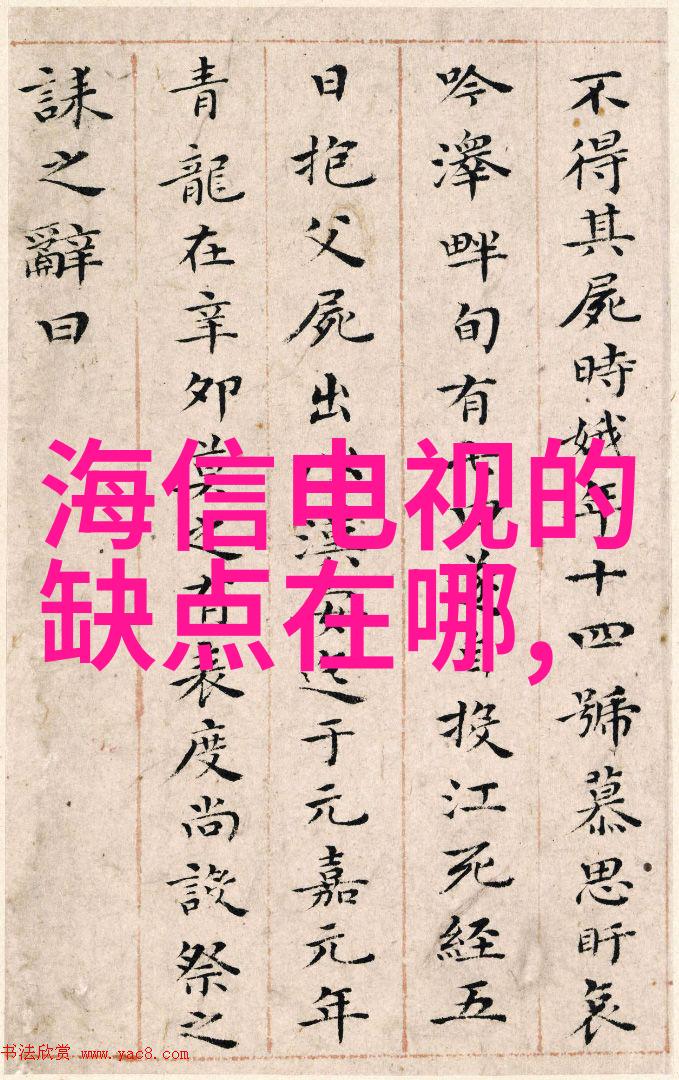 不得其屍時娥年十四號慕思盱哀
吟澤畔旬有七日遂自投江死經五
日抱父屍出以漢安迄于元嘉元年
青龍在辛卯莫之有表度尚設祭之
誄之辭曰
海信电视的
缺点在哪,
书法欣赏 www.yac8.com